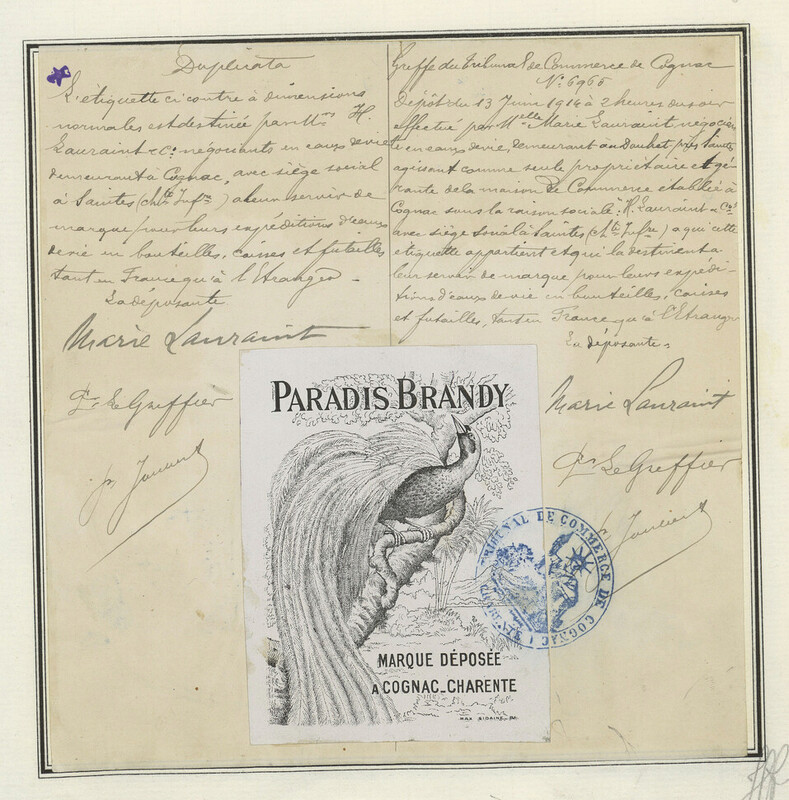 Duplicata
L'etiquette ci contre à dimensions
normales est destinée par Mrs H.
Lauraint & Co négociants en eaux devie
demeurant à Cognac, avec siège social
à Saintes (chte Infre) a leur servir de
marque pour leurs expéditions d'eaux
devie en bouteilles, caisses et futailles
tant en France qu'à l'Etranger.
La déposante
Marie Lauraint
Le Greffier
Greffe du tribunal de Commerce de Cognac
No 6965
Dépôt du 13 Juin 1914 à 2 heures du soir
effectué par Melle Marie Lauraint, négocian
te en eaux devie, demeurant au Douhet près Saintes
agissant comme seule propriétaire et gé-
rante de la maison de Commerce établie à
Cognac sous la raison sociale: H. Lauraint & Co
avec siège social à Saintes (chte Infre) a qui cette
etiquette appartient et qui la destinent a
leur servir de marque pour leurs expédi-
tions d'eaux devie en bouteilles, caisses
et futailles, tant en France qu'à l'Etranger
La déposante.
Marie Lauraint
Le Greffier
PARADIS BRANDY
MARQUE DÉPOSÉE
A COGNAC-CHARENTE
TRIBUNAL DE COMMERCE DE COGNAC